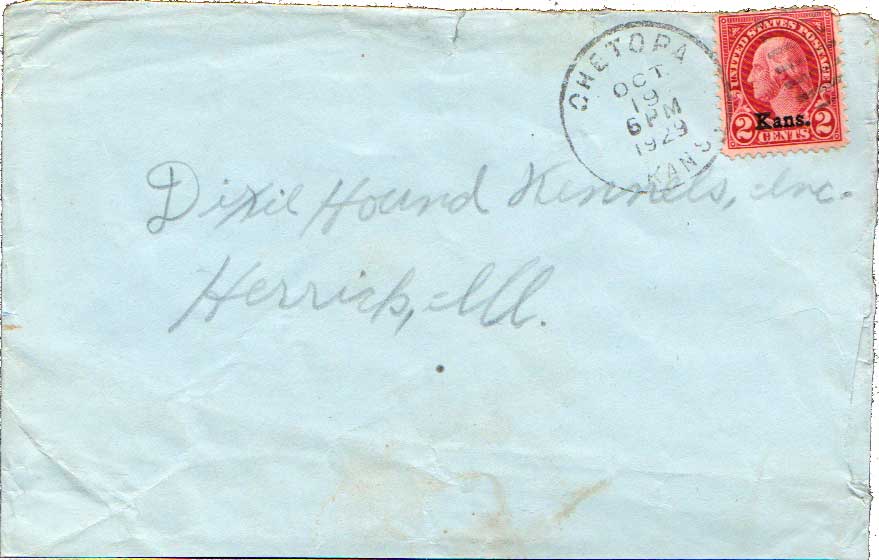 CHETOPA
OCT
19
6 PM
1929
KANS
UNITED STATES POSTAGE
Kans.
2 CENTS 2
Dixie Hound Kennels, Inc.
Herrick, Ill.